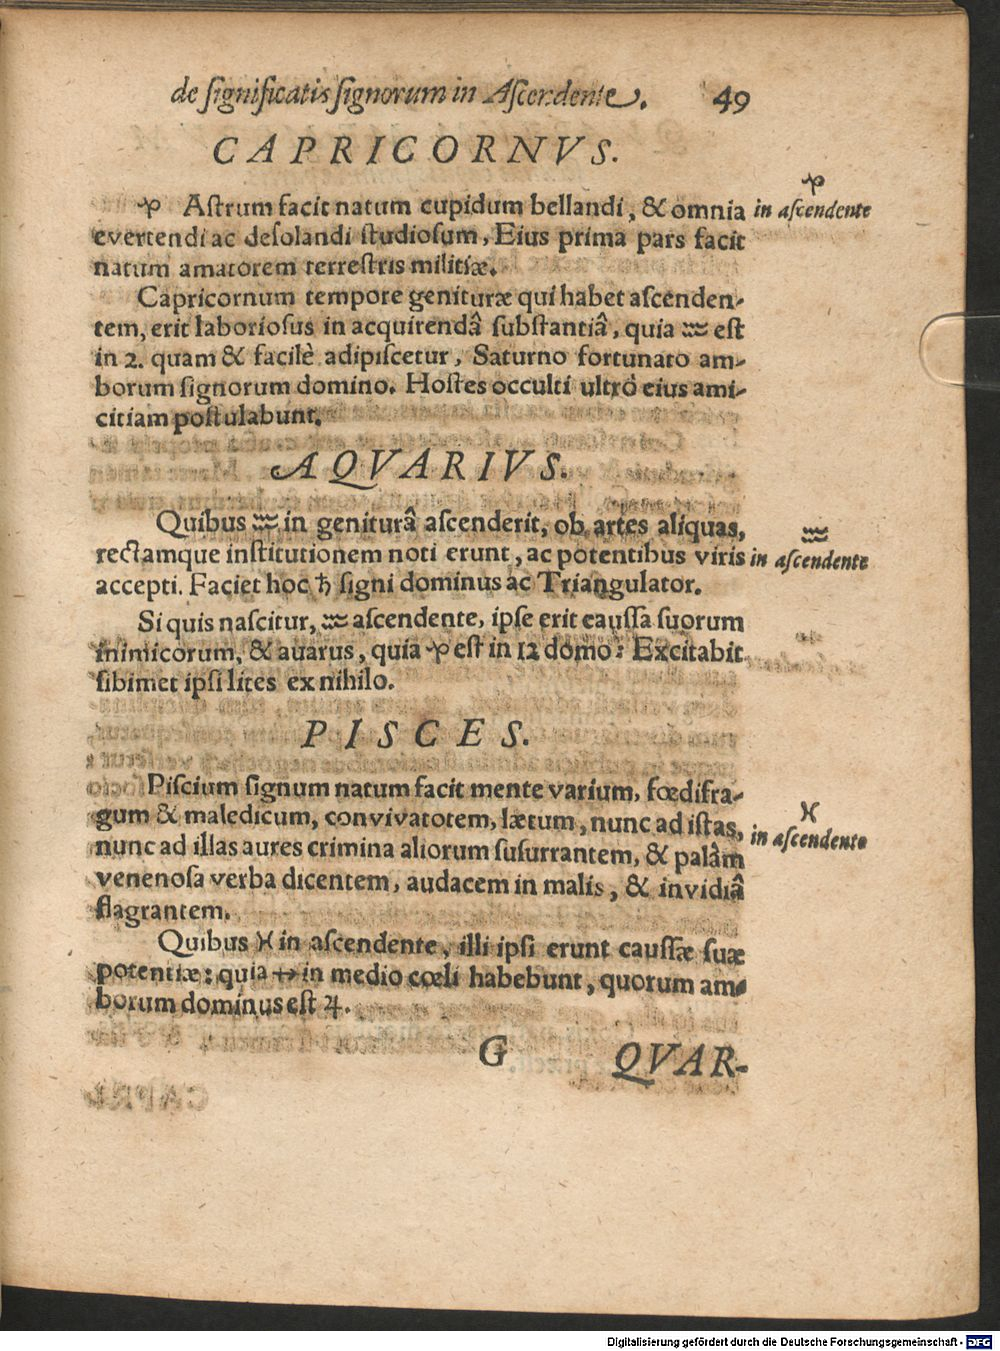 de significatis signorum in Ascendente. 49
CAPRICORNVS.
♑ Astrum facit natum cupidum bellandi, & omnia
♑
in ascendente
evertendi ac desolandi studiosum, Eius prima pars facit
natum amatorem terrestris militiæ.
Capricornum tempore genituræ qui habet ascenden-
tem, erit laboriosus in acquirendâ substantiâ, quia ♒ est
in 2. quam & facilè adipiscetur, Saturno fortunato am-
borum signorum domino. Hostes occulti ultrò eius ami-
citiam postulabunt.
AQVARIVS.
Quibus ♒ in geniturâ ascenderit, ob artes aliquas,
rectamque institutionem noti erunt, ac potentibus viris
♒
in ascendente
accepti. Faciet hoc ♄ signi dominus ac Triangulator.
Si quis nascitur, ♒ ascendente, ipse erit caussa suorum
inimicorum, & avarus, quia ♑ est in 12 domo: Excitabit
sibimet ipsi lites ex nihilo.
PISCES.
Piscium signum natum facit mente varium, fœdifra-
gum & maledicum, convivatotem, lætum, nunc ad istas,
♓
in ascendente
nunc ad illas aures crimina aliorum susurrantem, & palàm
venenosa verba dicentem, audacem in malis, & invidiâ
flagrantem.
Quibus ♓ in ascendente, illi ipsi erunt caussæ suæ
potentiæ: quia ♐ in medio cœli habebunt, quorum am-
borum dominus est ♃.
G QVAR-
Digitalisierung gefördert durch die Deutsche Forschungsgemeinschaft - DFG